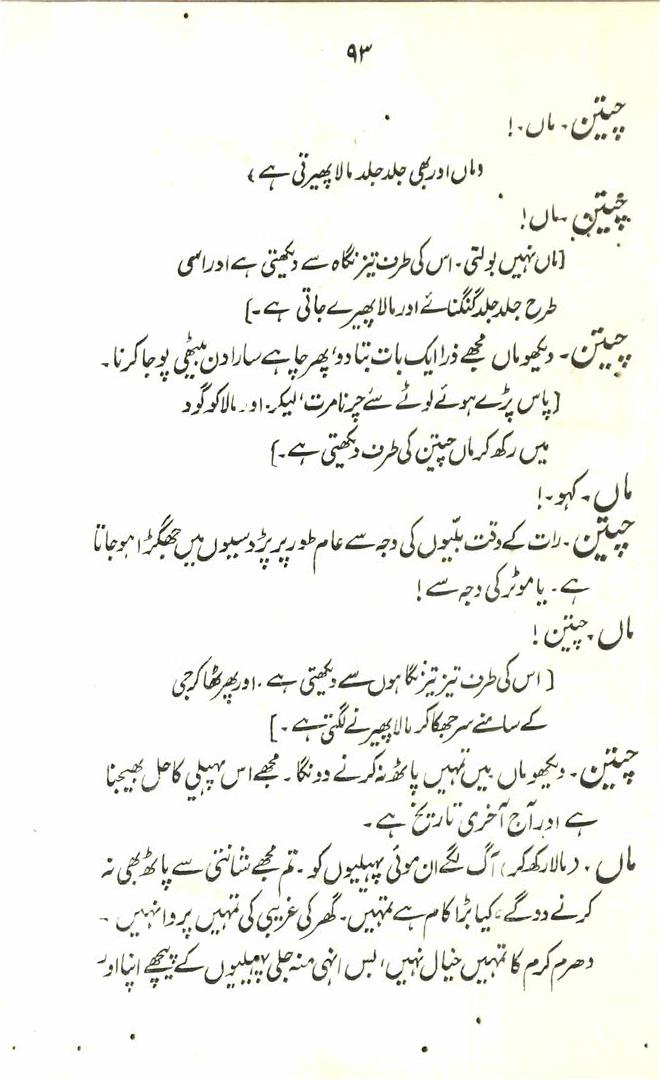 ۹۳
چیتن۔ ماں۔!
(ماں اور بھی جلد جلد مالا پھیرتی ہے)
چیتن۔ ماں!
[ماں نہیں بولتی۔ اس کی طرف تیز نگاہ سے دیکھتی ہے اور اسی
طرح جلد جلد گنگنائے اور مالا پھیرے جاتی ہے۔]
چیتن۔ دیکھو ماں مجھے ذرا ایک بات بتا دو، پھر چاہے سارا دن بیٹھی پوجا کرنا۔
[پاس پڑے ہوئے لوٹے سے چرنامرت، لیکر۔ اور مالا کو گود
میں رکھ کر ماں چیتن کی طرف دیکھتی ہے۔]
ماں۔ کہو۔!
چیتن۔ رات کے وقت بلّیوں کی وجہ سے عام طور پر پڑوسیوں میں جھگڑا ہو جاتا
ہے۔ یا موٹر کی وجہ سے!
ماں۔ چیتن!
[ اس کی طرف تیز تیز نگاہوں سے دیکھتی ہے۔ اور پھر ٹھاکر جی
کے سامنے سر جھکا کر مالا پھیرنے لگتی ہے۔]
چیتن۔ دیکھو ماں میں تمہیں پاٹھ نہ کرنے دونگا۔ مجھے اس پہیلی کا حل بھیجنا
ہے اور آج آخری تاریخ ہے۔
ماں۔ (مالا رکھ کر) آگ لگے ان موئی پہیلیوں کو۔ تم مجھے شانتی سے پاٹھ بھی نہ
کرنے دو گے، کیا بڑا کام ہے تمہیں۔ گھر کی غریبی کی تمہیں پروا نہیں۔
دھرم کرم کا تمہیں خیال نہیں، بس انہی منہ جلی پہیلیوں کے پیچھے اپنا اور